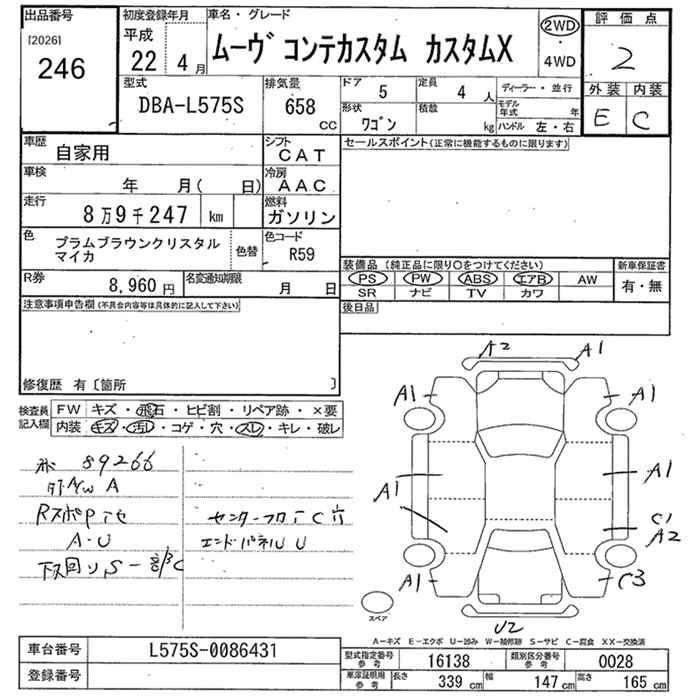 出品番号
[2026]
246
初度登録年月
平成
22 4月
車名・グレード
ムーヴ コンテカスタム カスタムX
2WD
・
4WD
評価点
2
外装 内装
E C
型式
DBA-L575S
排気量
658
cc
ドア 5
定員 4 人
形状
ワゴン
積載
kg
ディーラー・並行
モデル年式 年
ハンドル 左・右
車歴
自家用
シフト
CAT
車検
年 月( 日)
冷房
AAC
走行
8万9千247 km
燃料
ガソリン
色
プラムブラウンクリスタル
マイカ
色替
色コード
R59
R券
8,960円
名変通知期限
月 日
セールスポイント(正常に機能するものに限ります)
装備品(純正品に限り○をつけてください)
新車保証書
PS PW ABS エアB AW
有・無
SR ナビ TV カワ
後日品
注意事項申告欄(不具合内容等は具体的に記入して下さい)
修復歴 有〔箇所 〕
検査員
記入欄
FW キズ・飛石・ヒビ割・リペア跡・×要
内装 キズ・汚れ・コゲ・穴・スレ・キレ・破レ
89266
A
A・U
センターフロア C 穴
エンドパネル U
下回り S 一部 C
A2 A1
A1 A1
A1 A1
C1
A2
A1 C3
U2
スペア
A-キズ E-エクボ U-凹み W-補修跡 S-サビ C-腐食 XX-交換済
車台番号
L575S-0086431
登録番号
型式指定番号
参考
16138
類別区分番号
参考
0028
車庫証明用
参考
長さ 339 cm
幅 147 cm
高さ 165 cm